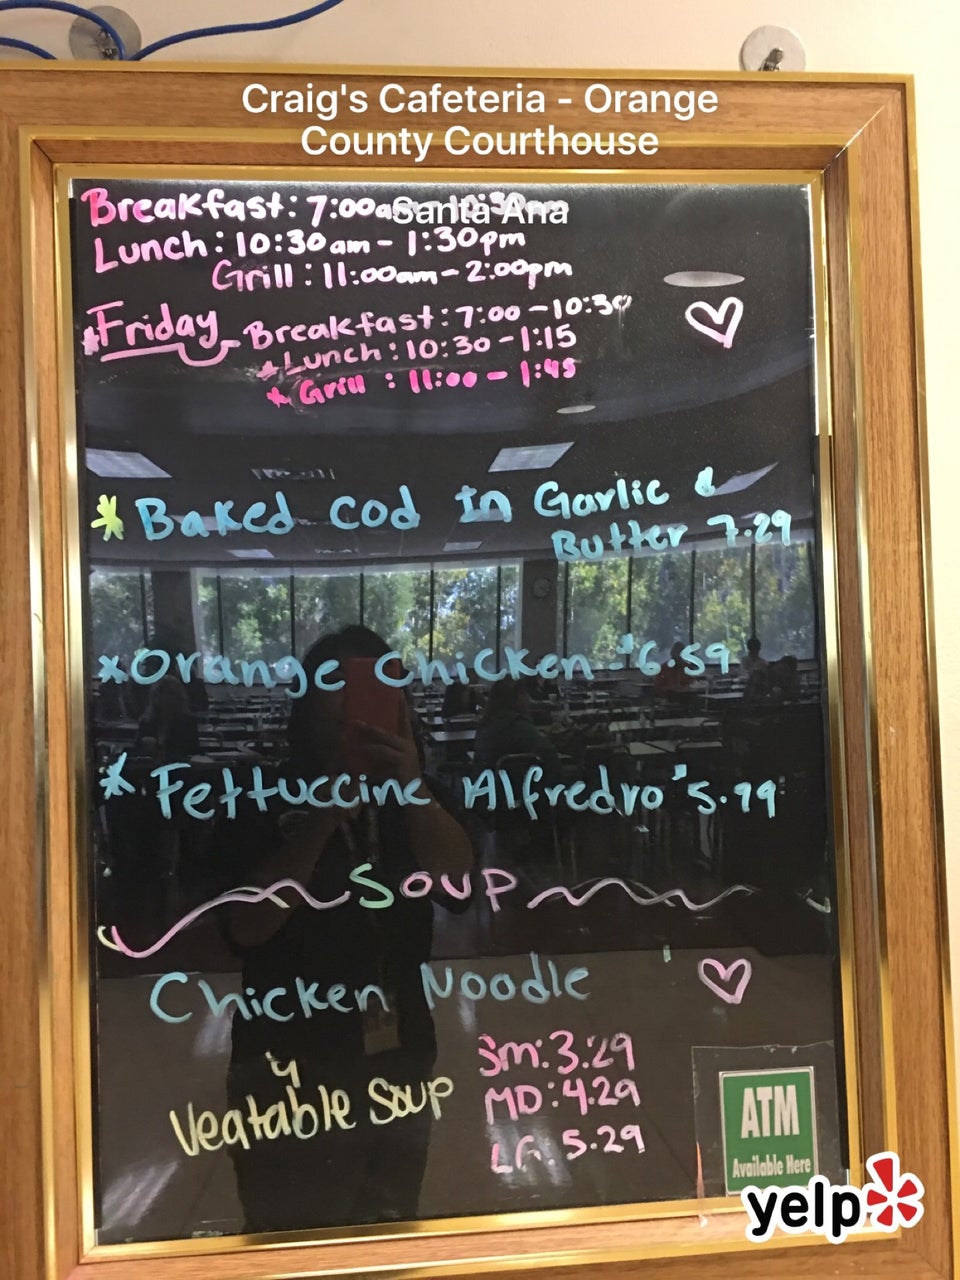 Craig's Cafeteria - Orange
County Courthouse
Santa Ana
Breakfast: 7:00am - 10:30am
Lunch: 10:30am - 1:30pm
Grill: 11:00am - 2:00pm
*Friday - Breakfast: 7:00 - 10:30
*Lunch: 10:30 - 1:15
*Grill: 11:00 - 1:45
*Baked Cod In Garlic &
Butter 7.29
*Orange Chicken - $6.59
*Fettuccine Alfredro $5.79
Soup
Chicken Noodle
Veatable Soup
Sm: 3.29
MD: 4.29
LG: 5.29
ATM
Available Here
yelp